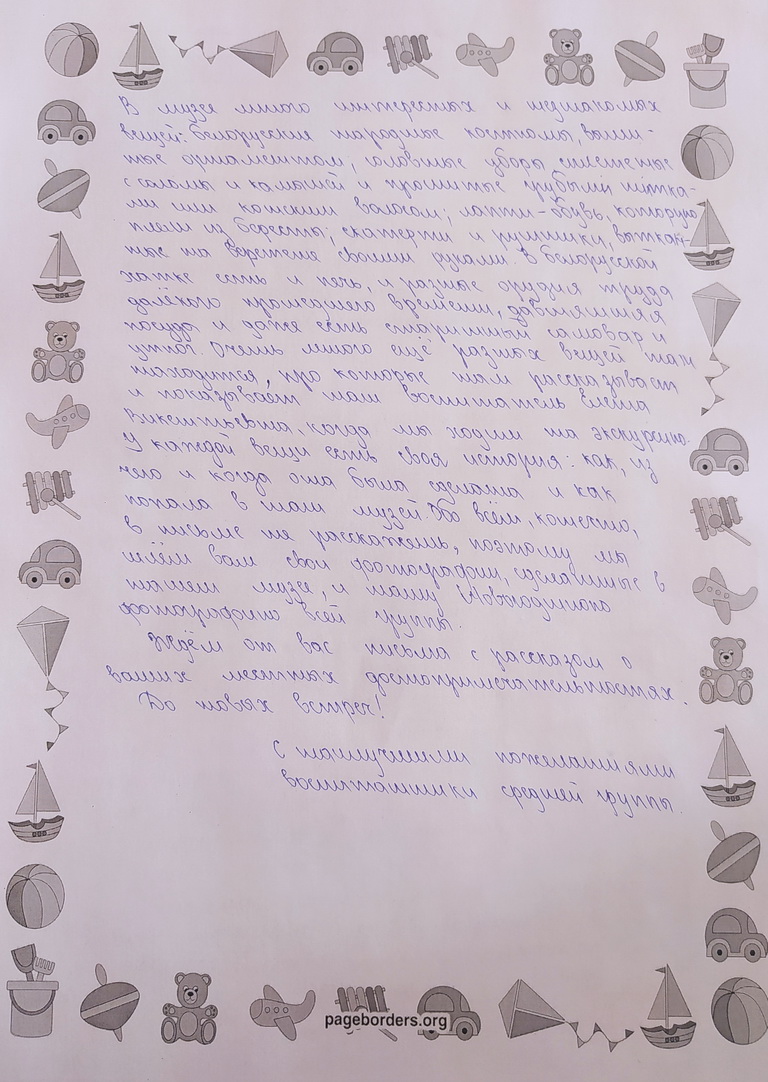 В музее много интересных и незнакомых
вещей: белорусские народные костюмы, выши-
тые орнаментом, головные уборы, сплетённые
с соломы и камышей и прошитые грубыми нитка-
ми или конским волосом; лапти-обувь, которую
плели из бересты; скатерти и рушники, выткан-
ные на веретене своими руками. В белорусской
хатке есть и печь, и разные орудия труда
далёкого прошедшего времени, давнишняя
посуда и даже есть старинный самовар и
утюг. Очень много ещё разных вещей там
находится, про которые нам рассказывает
и показывает наш воспитатель Елена
Викентьевна, когда мы ходим на экскурсию.
У каждой вещи есть своя история: как, из
чего и когда она была сделана и как
попала в наш музей. Обо всём, конечно,
в письме не расскажешь, поэтому мы
шлём вам свои фотографии, сделанные в
нашем музее, и нашу Новогоднюю
фотографию всей группы.
Ждём от вас письма с рассказом о
ваших местных достопримечательностях.
До новых встреч!
С наилучшими пожеланиями
воспитанники средней группы.
pageborders.org